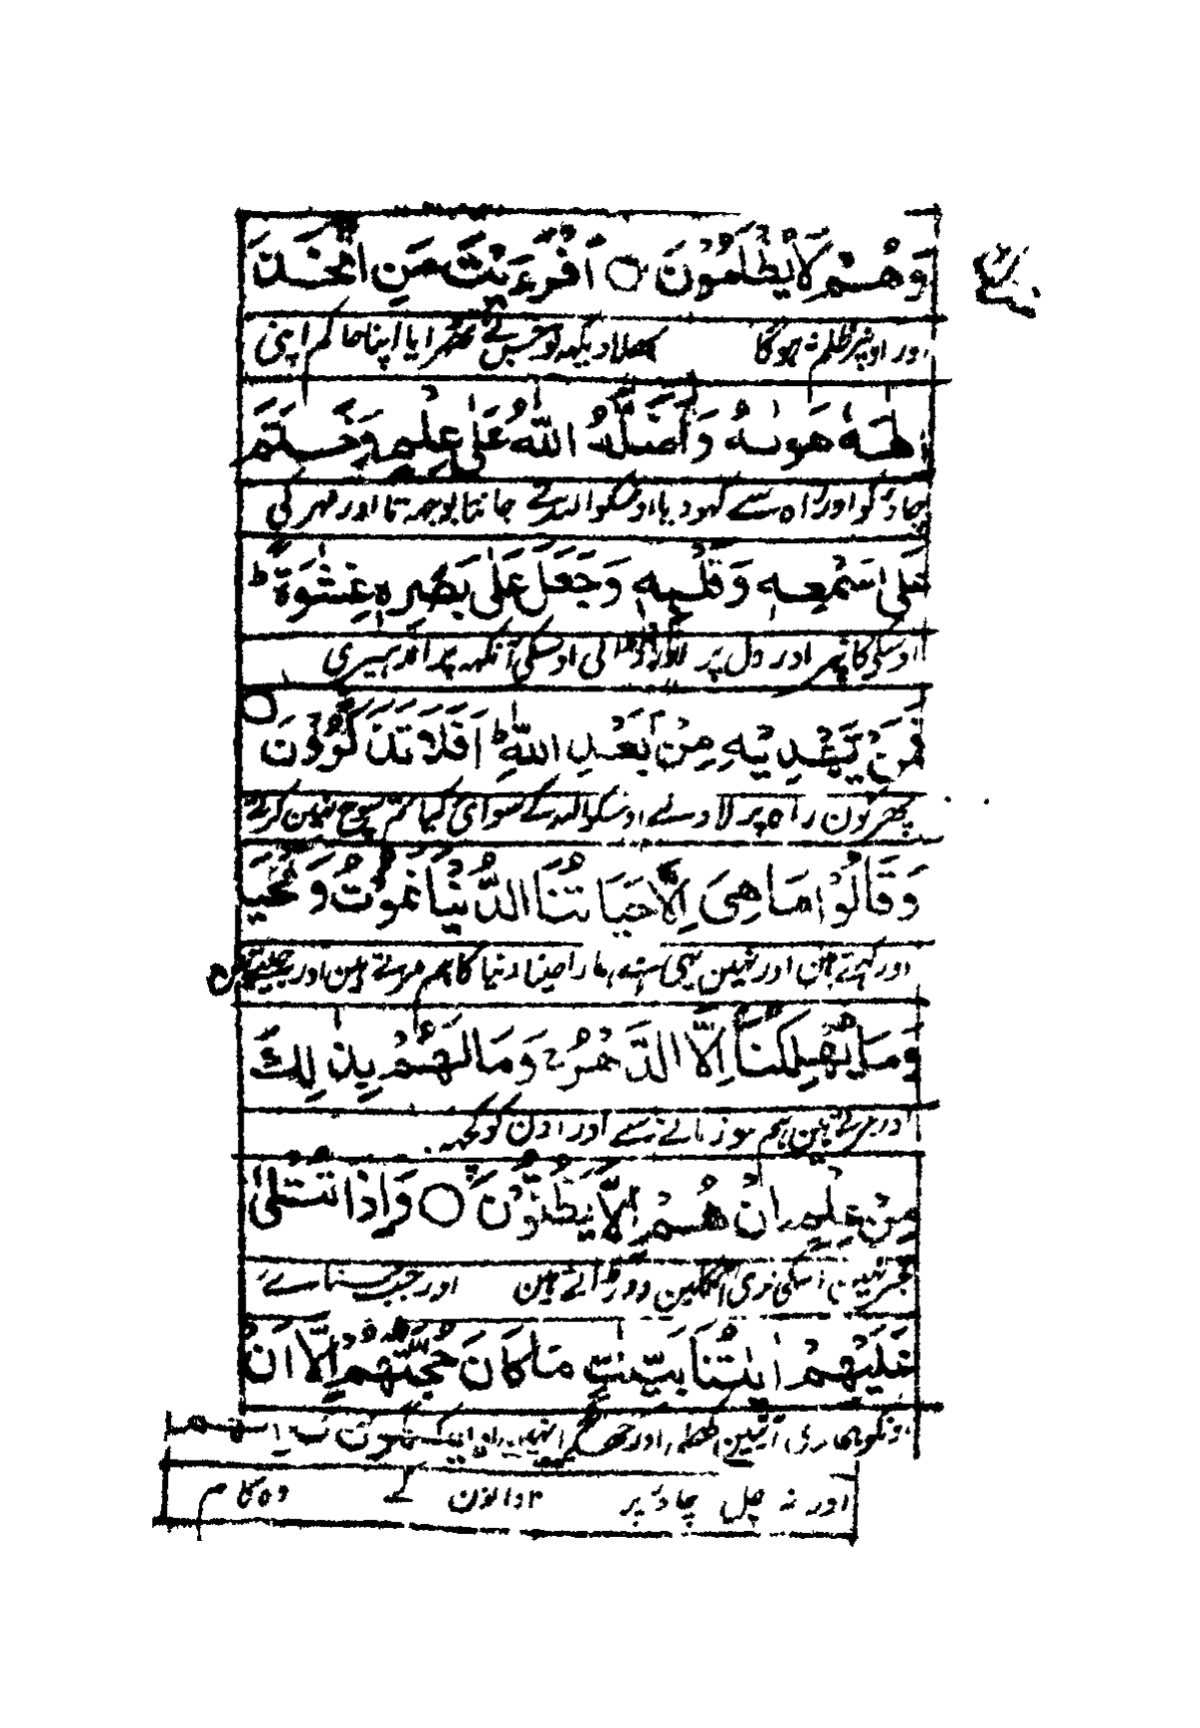 وَهُمْ لَا يُظْلَمُوْنَ ○ اَفَرَءَيْتَ مَنِ اتَّخَذَ
اور اونپر ظلم نہ ہوگا بھلا دیکھہ تو جسنے ٹھرایا اپنا حاکم اپنی
اِلٰهَهٗ هَوٰىهُ وَاَضَلَّهُ اللّٰهُ عَلٰى عِلْمٍ وَّخَتَمَ
چاؤ کو اور راہ سے کھودیا اوسکو اللہ نے جانتا بوجھتا اور مہر کی
عَلٰى سَمْعِهٖ وَقَلْبِهٖ وَجَعَلَ عَلٰى بَصَرِهٖ غِشٰوَةً ؕ
اوسکی کان پر اور دل پر اور ڈالی اوسکی آنکھہ پر اندہیری
فَمَنْ يَّهْدِيْهِ مِنْۢ بَعْدِ اللّٰهِ ؕ اَفَلَا تَذَكَّرُوْنَ ○
پھر کون راہ پر لاوے اوسکو اللہ کے سوای کیا تم سوچ نہین کرتے
وَقَالُوْا مَا هِىَ اِلَّا حَيَاتُنَا الدُّنْيَا نَمُوْتُ وَنَحْيَا
اور کہتے ہین اور نہین یہی ہے ہمارا جینا دنیا کا ہم مرتے ہین اور جیتے ہین
وَمَا يُهْلِكُنَا اِلَّا الدَّهْرُ ۚ وَمَا لَهُمْ بِذٰلِكَ
اور مرتے ہین ہم سو زمانے سے اور اون کو کچھہ
مِنْ عِلْمٍ اِنْ هُمْ اِلَّا يَظُنُّوْنَ ○ وَاِذَا تُتْلٰى
خبر نہین اسکی نری اٹکلین دوڑاتے ہین اور جب سناے
عَلَيْهِمْ اٰيٰتُنَا بَيِّنٰتٍ مَّا كَانَ حُجَّتَهُمْ اِلَّا اَنْ
اونکو ہماری آتیین کھلی اور
اور نہ چل چاؤ پر نادانون کے وہ کام